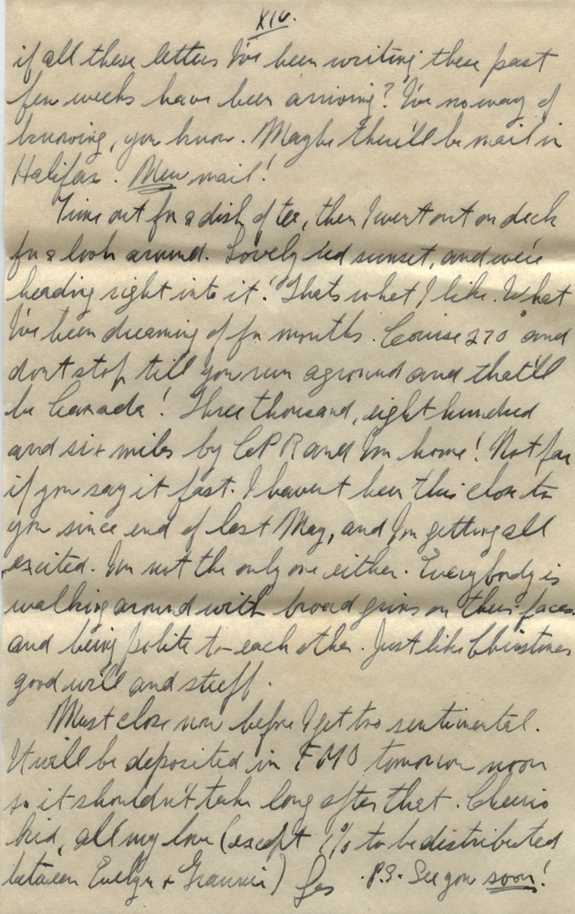 XIV.
if all these letters I've been writing these past
few weeks have been arriving? I've no way of
knowing, you know. Maybe there'll be mail in
Halifax. Mmm mail!
Time out for a dish of tea, then I went out on deck
for a look around. Lovely red sunset, and we're
heading right into it! That's what I like. What
I've been dreaming of for months. Course 270° and
don't stop till you run aground and that'll
be Canada! Three thousand, eight hundred
and six miles by CPR and I'm home! Not far
if you say it fast. I haven't been this close to
you since end of last May, and I'm getting all
excited. I'm not the only one either. Everybody is
walking around with broad grins on their faces
and being polite to each other. Just like Christmas
good will and stuff.
Must close now before I get too sentimental.
It will be deposited in FMO tomorrow noon
so it shouldn't take long after that. Cheerio
kid, all my love (except 1% to be distributed
between Evelyn + Grannie) P.S. See you soon!